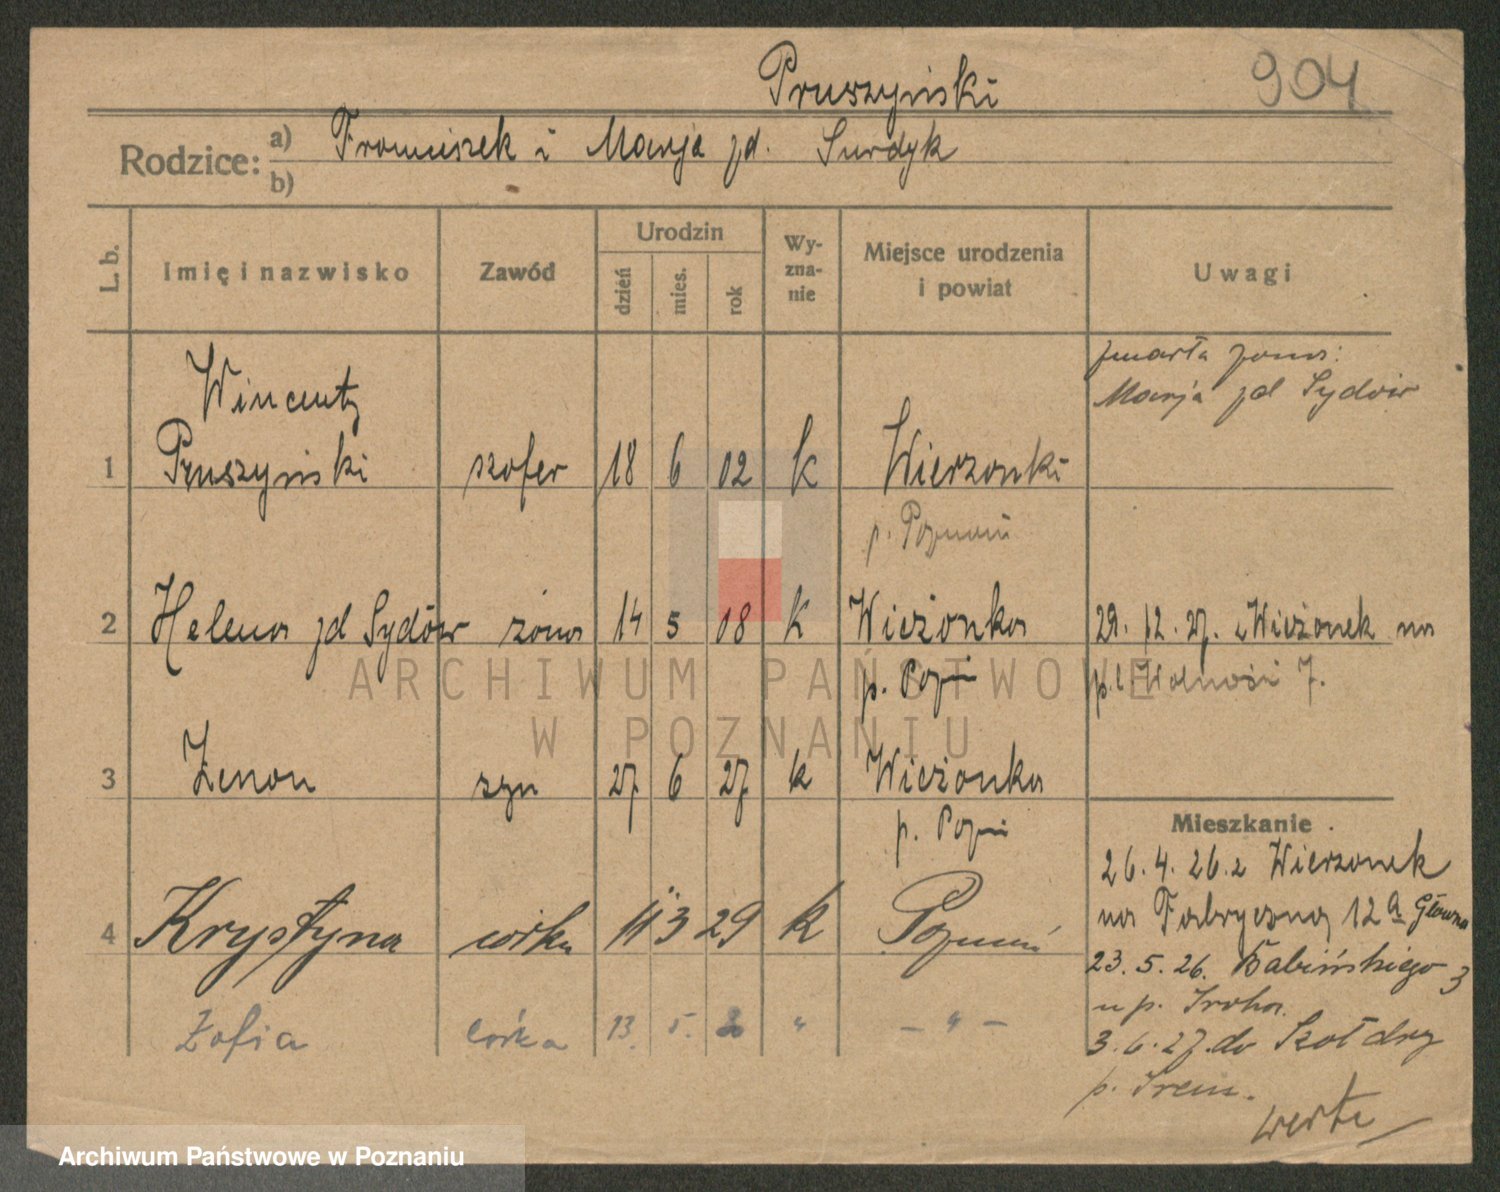 Pruszyński 904
Rodzice: a) Franciszek i Marja zd. Surdyk
b)
L. b. Imię i nazwisko Zawód Urodzin dzień mies. rok Wyznanie Miejsce urodzenia i powiat Uwagi
zmarła żona:
Marja zd Sydów
Wincenty
1 Pruszyński szofer 18 6 02 k Wierzonki
p. Poznań
2 Helena zd Sydów żona 14 5 08 k Wieżonka 29. 12. 27. z Wieżonek na
p. Pozn pl. Wolności 7.
3 Zenon syn 27 6 27 k Wieżonka
p. Pozn
Mieszkanie
26. 4. 26. z Wierzonek
na Fabryczna 12a Główna
4 Krystyna córka 11 3 29 k Poznań
23. 5. 26. Babińskiego 3
u p.
Zofia córka 13. 5. " – " –
3. 6. 27. do Szołdry
p. Śrem.
verte
ARCHIWUM PAŃSTWOWE
W POZNANIU
Archiwum Państwowe w Poznaniu